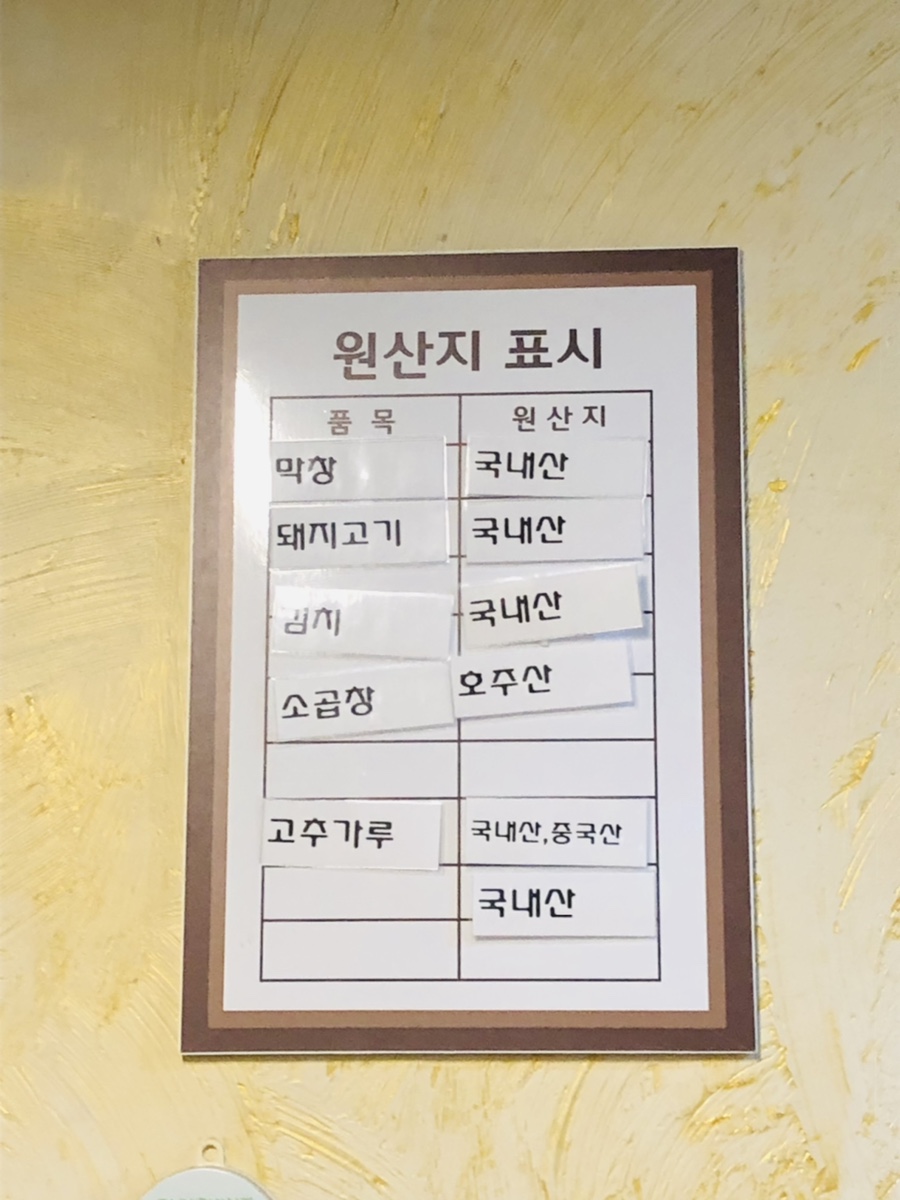 원산지 표시
품 목 원 산 지
막창 국내산
돼지고기 국내산
김치 국내산
소곱창 호주산
고추가루 국내산,중국산
국내산